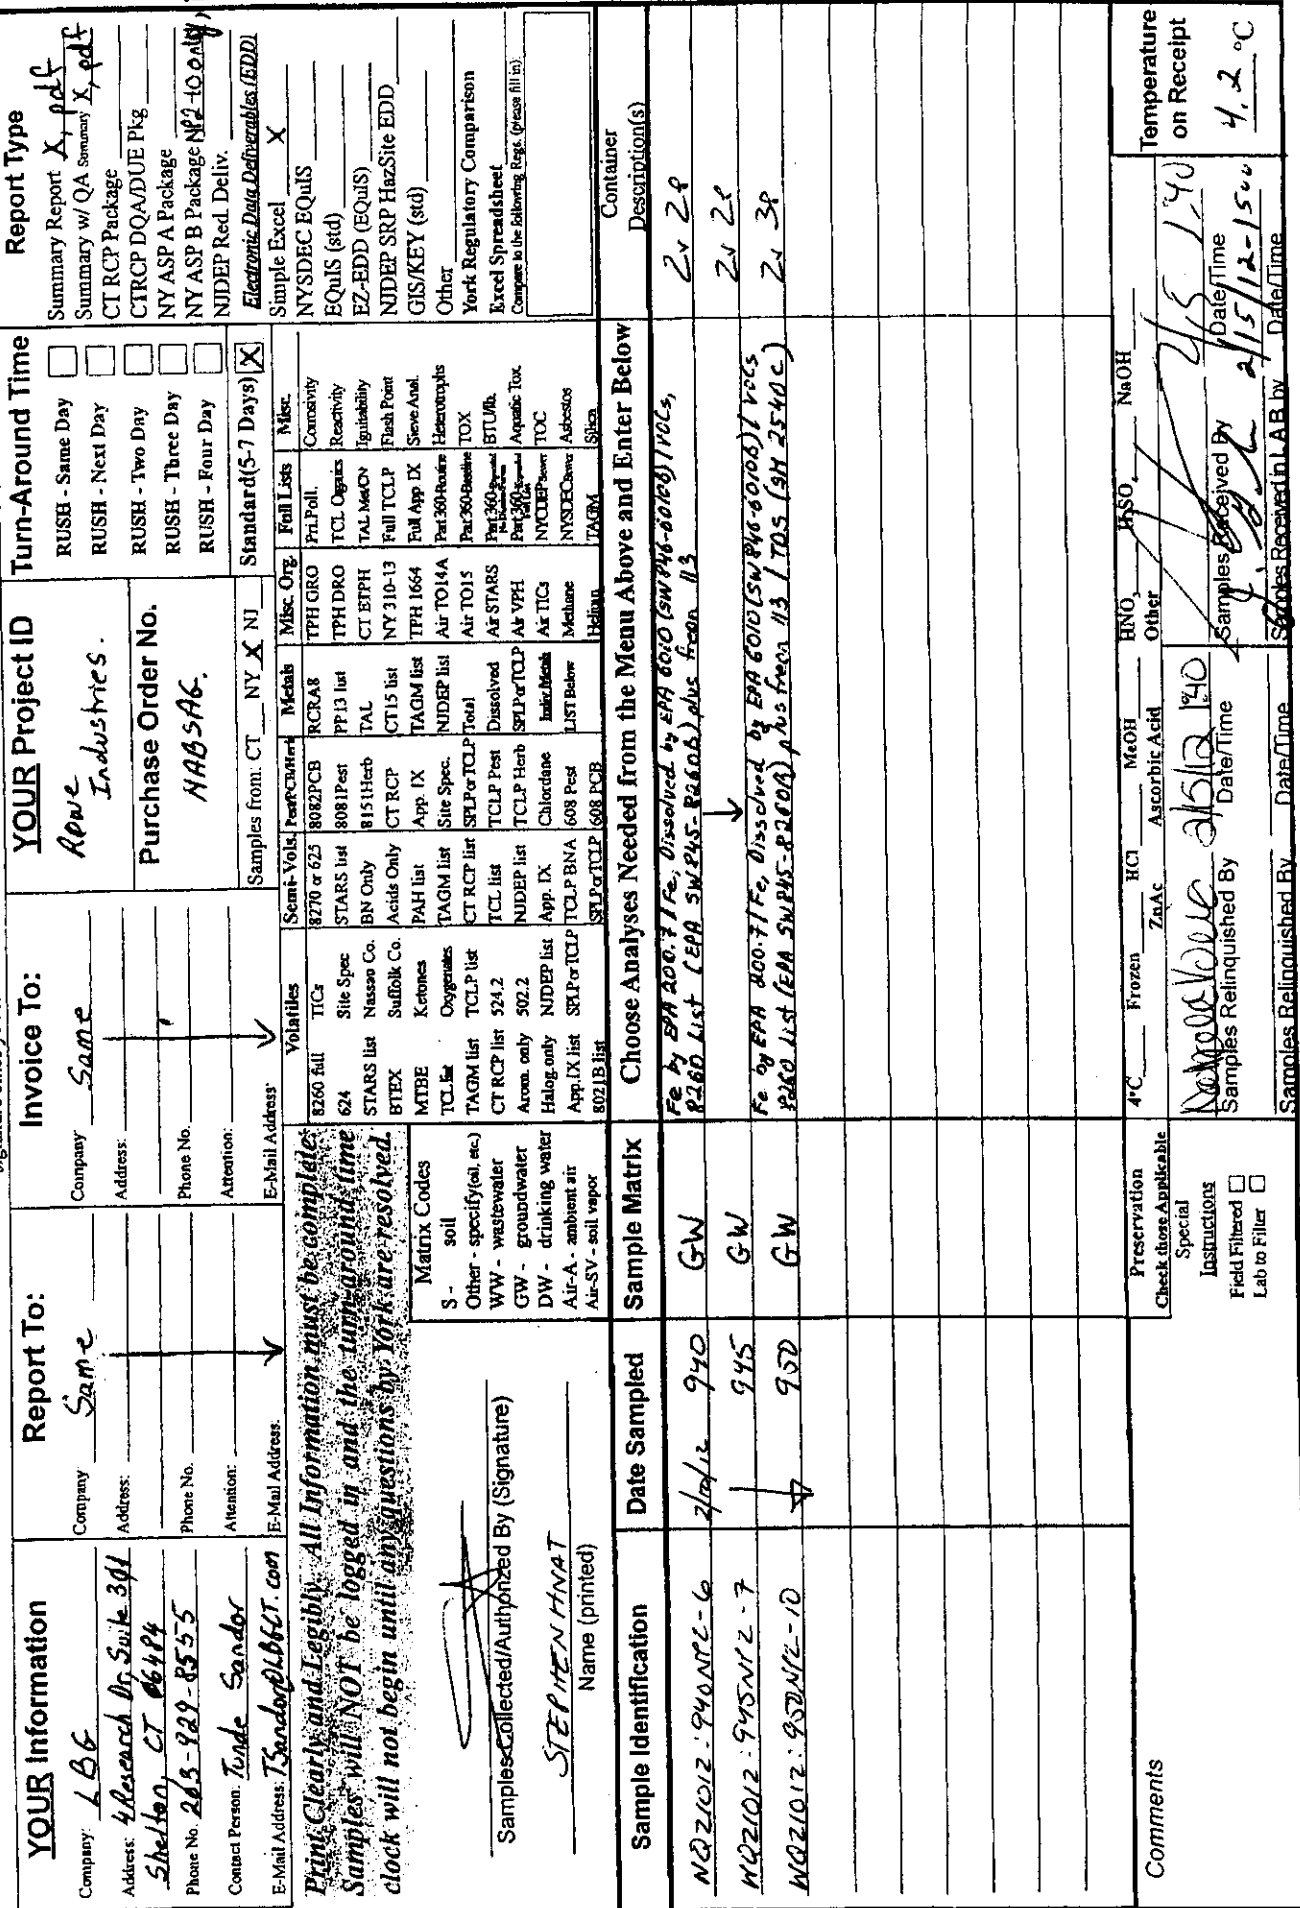 YOUR Information
Company: LBG
Address: 4 Research Dr, Suite 301
Shelton, CT 06484
Phone No. 203-929-8555
Contact Person: Tunde Sandor
E-Mail Address: TSandor@LBGCT.com
Report To:
Company Same
Address:
Phone No.
Attention:
E-Mail Address:
Invoice To:
Company Same
Address:
Phone No.
Attention:
E-Mail Address:
YOUR Project ID
Rowe
Industries.
Purchase Order No.
NABSAG.
Samples from: CT NY X NJ
Turn-Around Time
RUSH - Same Day
RUSH - Next Day
RUSH - Two Day
RUSH - Three Day
RUSH - Four Day
Standard(5-7 Days) X
Report Type
Summary Report X, pdf
Summary w/ QA Summary X, pdf
CT RCP Package
CTRCP DQA/DUE Pkg
NY ASP A Package
NY ASP B Package NP2-10 only
NJDEP Red. Deliv.
Electronic Data Deliverables (EDD)
Simple Excel X
NYSDEC EQuIS
EQuIS (std)
EZ-EDD (EQuIS)
NJDEP SRP HazSite EDD
GIS/KEY (std)
Other
York Regulatory Comparison
Excel Spreadsheet
Compare to the following Regs. (please fill in):
Print Clearly and Legibly. All Information must be complete.
Samples will NOT be logged in and the turn-around time
clock will not begin until any questions by York are resolved.
Samples Collected/Authorized By (Signature)
STEPHEN HNAT
Name (printed)
Matrix Codes
S - soil
Other - specify(oil, etc.)
WW - wastewater
GW - groundwater
DW - drinking water
Air-A - ambient air
Air-SV - soil vapor
Volatiles
8260 full TICs
624 Site Spec
STARS list Nassau Co.
BTEX Suffolk Co.
MTBE Ketones
TCL list Oxygenates
TAGM list TCLP list
CT RCP list 524.2
Arom. only 502.2
Halog. only NJDEP list
App.IX list SPLPorTCLP
8021B list
Semi-Vols.
8270 or 625
STARS list
BN Only
Acids Only
PAH list
TAGM list
CT RCP list
TCL list
NJDEP list
App. IX
TCLP BNA
SPLPorTCLP
Pest/PCB/Herb
8082PCB
8081Pest
8151Herb
CT RCP
App. IX
Site Spec.
SPLPorTCLP
TCLP Pest
TCLP Herb
Chlordane
608 Pest
608 PCB
Metals
RCRA8
PP13 list
TAL
CT15 list
TAGM list
NJDEP list
Total
Dissolved
SPLPorTCLP
Indiv.Metals
LIST Below
Misc. Org.
TPH GRO
TPH DRO
CT ETPH
NY 310-13
TPH 1664
Air TO14A
Air TO15
Air STARS
Air VPH
Air TICs
Methane
Helium
Full Lists
Pri.Poll.
TCL Organics
TAL MetCN
Full TCLP
Full App IX
Part 360-Routine
Part 360-Baseline
NYCDEPSewer
NYSDECSewer
TAGM
Misc.
Corrosivity
Reactivity
Ignitability
Flash Point
Sieve Anal.
Heterotrophs
TOX
BTU/lb.
Aquatic Tox.
TOC
Asbestos
Silica
Sample Identification
Date Sampled
Sample Matrix
Choose Analyses Needed from the Menu Above and Enter Below
Container
Description(s)
WQ21012:940NP2-6 2/10/12 940 GW Fe by EPA 200.7 / Fe, Dissolved by EPA 6010 (SW846-6010B) / VOCs,
8260 List (EPA SW845-8260B) plus freon 113 2v 2p
WQ21012:945NP2-7 945 GW 2v 2p
WQ21012:950NP2-10 950 GW Fe by EPA 200.7 / Fe, Dissolved by EPA 6010 (SW846-6010B) / VOCs
8260 List (EPA SW845-8260B) plus freon 113 / TDS (SM 2540C) 2v 3p
Comments
Preservation
Check those Applicable
Special
Instructions
Field Filtered
Lab to Filter
4°C Frozen HCl MeOH HNO3 H2SO4 NaOH
ZnAc Ascorbic Acid Other
2/15/12 1:40
Samples Relinquished By Date/Time
Samples Relinquished By Date/Time
2/15 1:40
Samples Received By Date/Time
2/15/12-1500
Samples Received in LAB by Date/Time
Temperature
on Receipt
4.2 °C